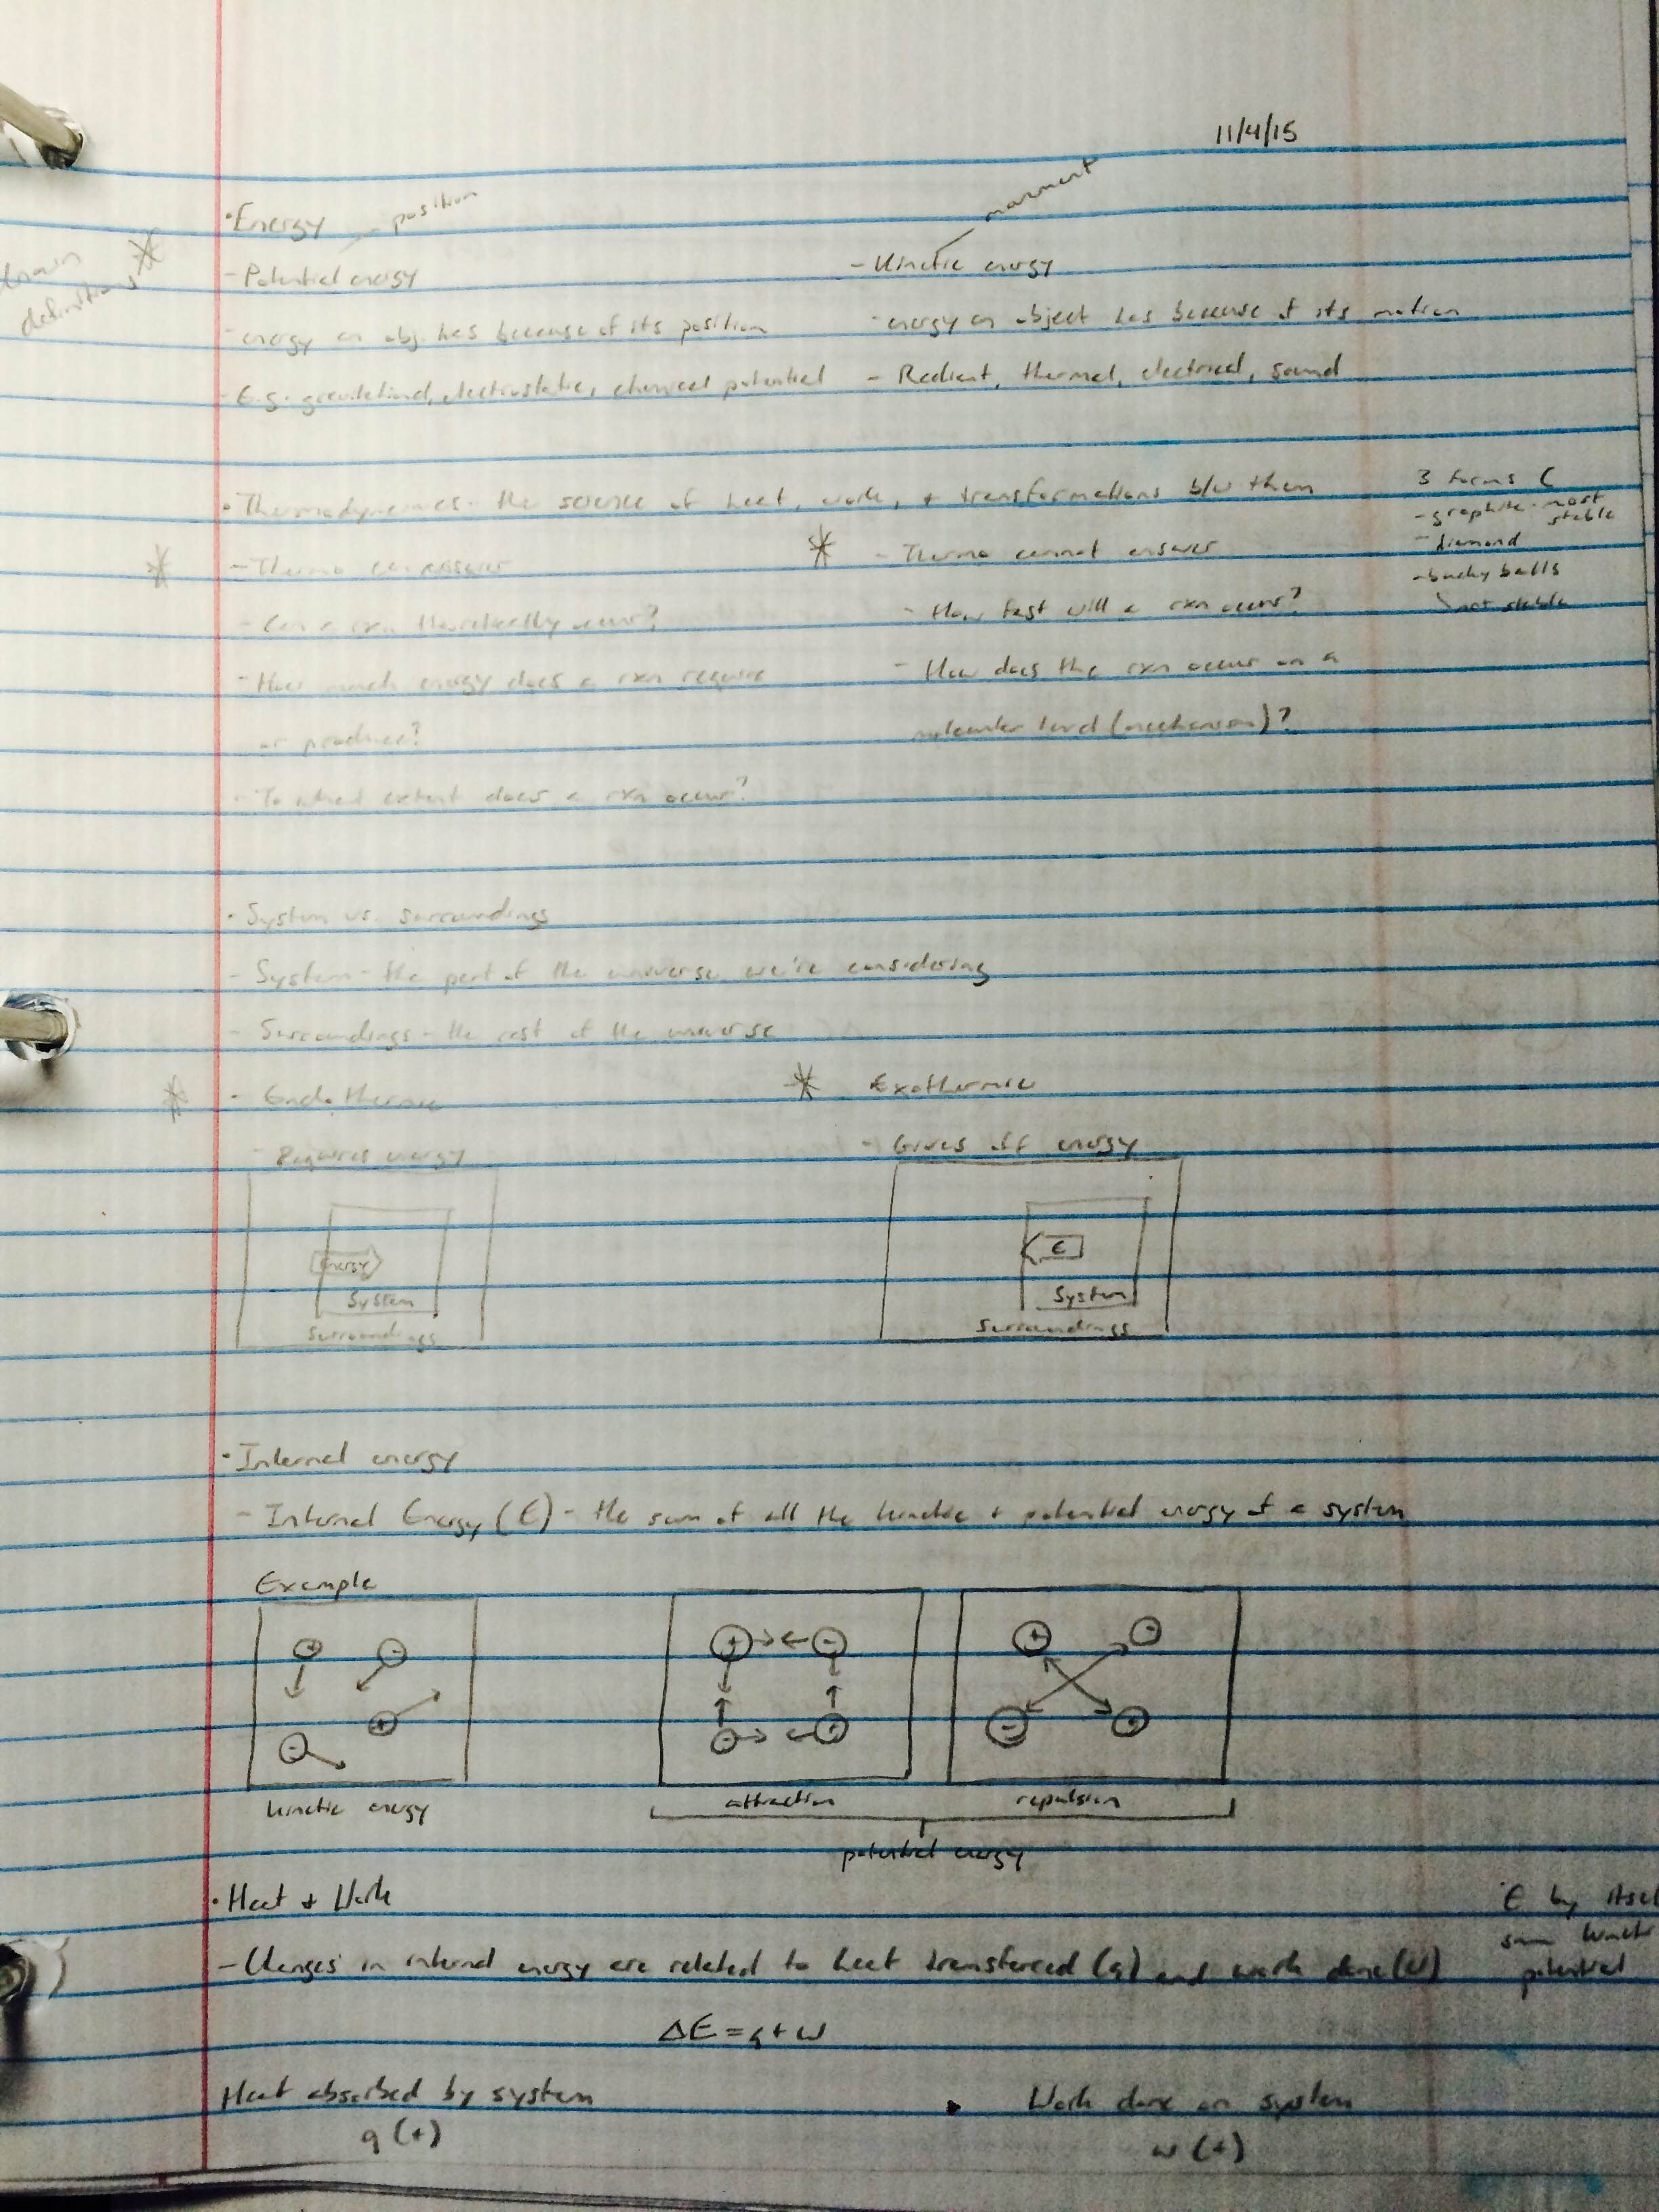 11/4/15
• Energy — position
movement
know definitions *
- Potential energy
- Kinetic energy
- energy an obj. has because of its position
- energy an object has because of its motion
- E.g. gravitational, electrostatic, chemical potential
- Radiant, thermal, electrical, sound
• Thermodynamics - the science of heat, work, + transformations b/w them
3 forms C
- graphite - most stable
- diamond
- bucky balls
not stable
* - Thermo can answer
* - Thermo cannot answer
- Can a rxn theoretically occur?
- How fast will a rxn occur?
- How much energy does a rxn require
or produce?
- How does the rxn occur on a
molecular level (mechanism)?
- To what extent does a rxn occur?
• System vs. surroundings
- System - the part of the universe we're considering
- Surroundings - the rest of the universe
* • Endothermic
* Exothermic
- Requires energy
- Gives off energy
Energy
System
Surroundings
E
System
Surroundings
• Internal energy
- Internal Energy (E) - the sum of all the kinetic + potential energy of a system
Example
+ -
+ -
+ -
- +
+ -
- +
kinetic energy
attraction
repulsion
potential energy
• Heat + Work
- Changes in internal energy are related to heat transferred (q) and work done (w)
E by itsel
sum kinetic
potential
ΔE = q + w
Heat absorbed by system
q (+)
• Work done on system
w (+)